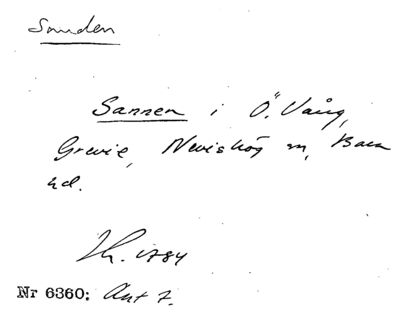 Sanden
Sannen i Ö. Vång,
Grevie, Nevishög m, Bara
hd.
Lh. 1784
Nr 6360: Ant 7.